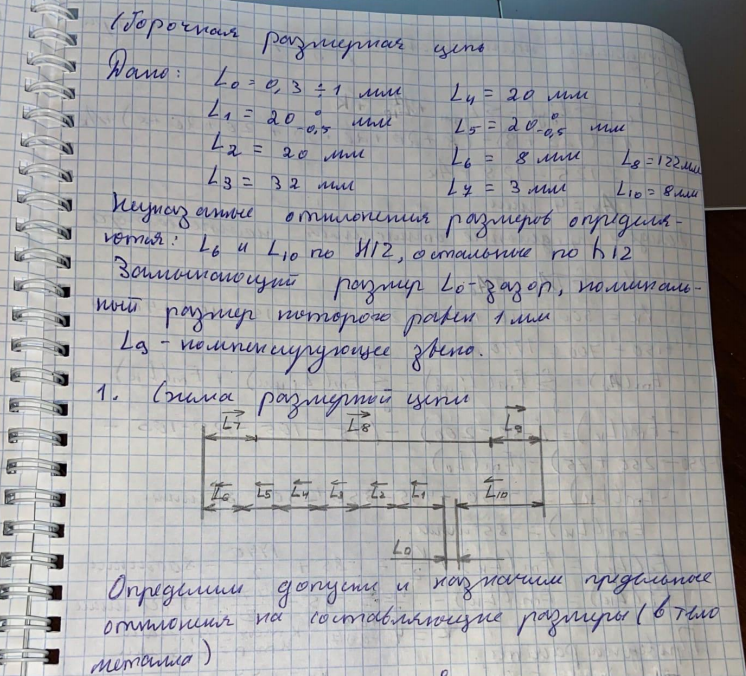 Сборочная размерная цепь
Дано: L0 = 0,3 ÷ 1 мм L4 = 20 мм
L1 = 20 0 -0,5 мм L5 = 20 0 -0,5 мм
L2 = 20 мм L6 = 8 мм L8 = 122 мм
L3 = 32 мм L7 = 3 мм L10 = 8 мм
Неуказанные отклонения размеров определя-
ются: L6 и L10 по H12, остальные по h12
Замыкающий размер L0 - зазор, номиналь-
ный размер которого равен 1 мм
L9 - компенсирующее звено.
1. Схема размерной цепи
L7 L8 L9
L6 L5 L4 L3 L2 L1 L10
L0
Определим допуски и назначим предельные
отклонения на составляющие размеры (в тело
металла)